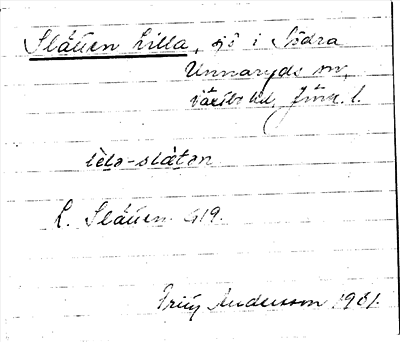 Slåtten Lilla, sjö i Södra
Unnaryds sn,
Västbo hd, Jönk. l.
lèla-slåtən
L. Slåtten G19.
Fritz Andersson 1931.